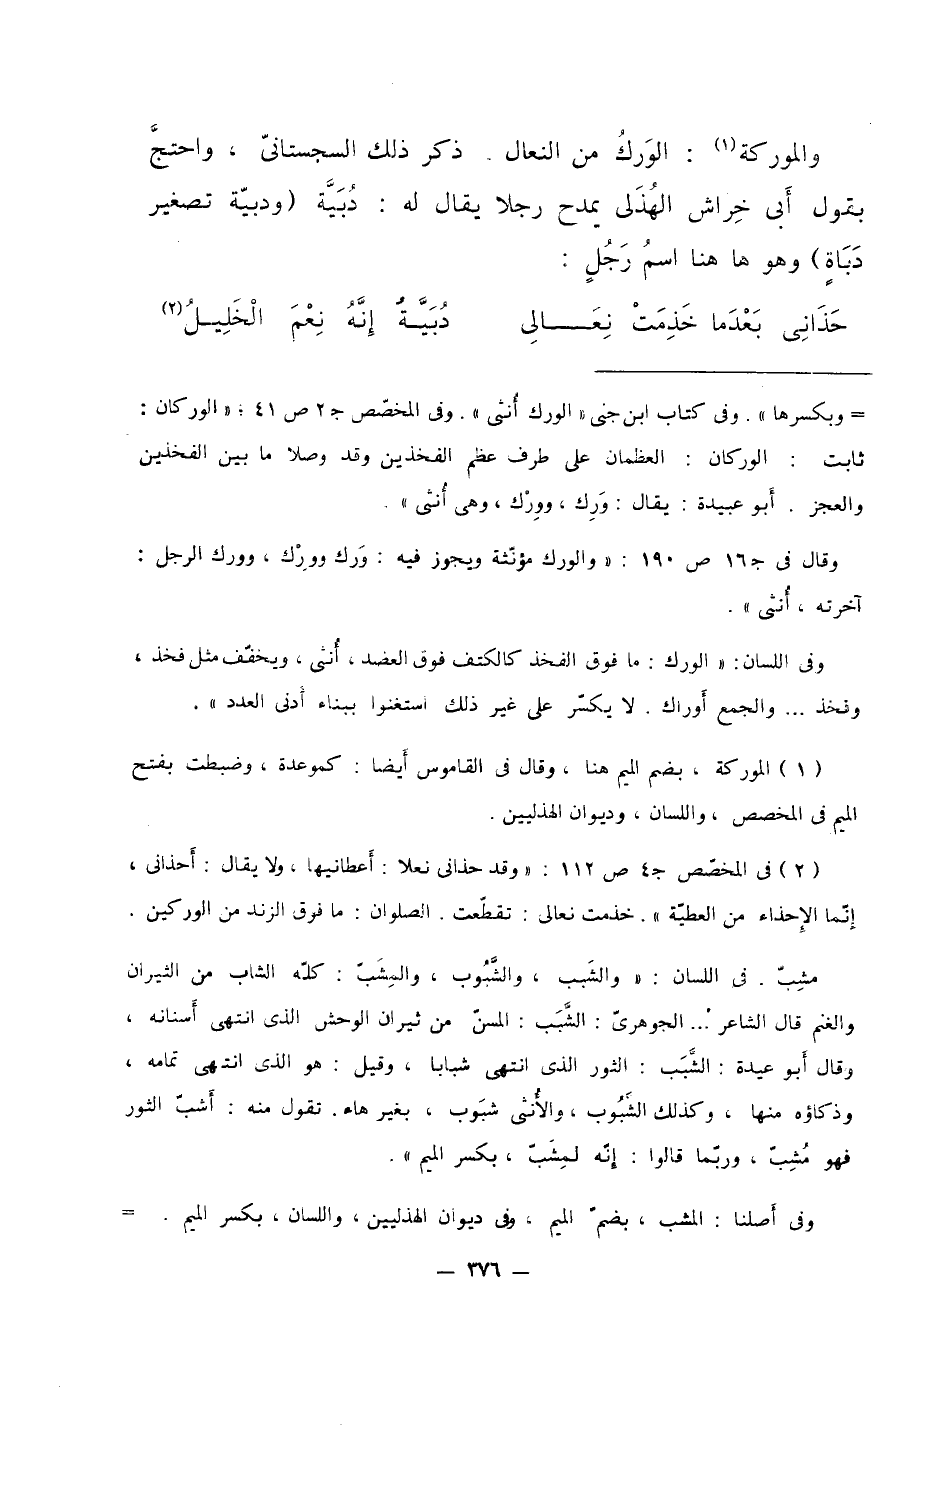 والموركة(١) : الوَركُ من النعال . ذكر ذلك السجستانىّ ، واحتجَّ
بقول أَبى خِراش الهُذَلى يمدح رجلا يقال له : دُبَيَّة (ودبيّة تصغير
دَبَاةٍ) وهو ها هنا اسمُ رَجُلٍ :
حَذَانِى بَعْدَما خَذِمَتْ نِعَـــالِى دُبَيَّـــةُ إِنَّهُ نِعْمَ الْخَلِيــلُ(٢)
= وبكسرها » . وفى كتاب ابن جنى « الورك أُنثى » . وفى المخصّص ج٢ ص ٤١ ؛ « الوركان :
ثابت : الوركان : العظمان على طرف عظم الفخذين وقد وصلا ما بين الفخذين
والعجز . أَبو عبيدة : يقال : وَرِك ، ووِرْك ، وهى أُنثى » .
وقال فى ج١٦ ص ١٩٠ : « والورك مؤنّثة ويجوز فيه : وَرك ووِرْك ، وورك الرجل :
آخرته ، أُنثى » .
وفى اللسان: « الورك : ما فوق الفخذ كالكتف فوق العضد ، أُنثى ، ويخفّف مثل فخذ ،
وفخذ ... والجمع أَوراك . لا يكسّر على غير ذلك استغنوا ببناء أَدنى العدد » .
( ١ ) الموركة ، بضم الميم هنا ، وقال فى القاموس أَيضا : كموعدة ، وضبطت بفتح
الميم فى المخصص ، واللسان ، وديوان الهذليين .
( ٢ ) فى المخصّص ج٤ ص ١١٢ : « وقد حذانى نعلا : أَعطانيها ، ولا يقال : أَحذانى ،
إِنّما الإِحذاء من العطيّة » . خذمت نعالى : تقطّعت . الصلوان : ما فوق الزند من الوركين .
مشِبّ . فى اللسان : « والشَبب ، والشَّبُوب ، والمِشَبّ : كلّه الشاب من الثيران
والغنم قال الشاعر : ... الجوهرىّ : الشَّبَب : المسنّ من ثيران الوحش الذى انتهى أَسنانه ،
وقال أَبو عيدة : الشَّبَب : الثور الذى انتهى شبابا ، وقيل : هو الذى انتهى تمامه ،
وذكاؤه منها ، وكذلك الشَبُوب ، والأُنثى شبَوب ، بغير هاء . تقول منه : أَشبّ الثور
فهو مُشِبّ ، وربّما قالوا : إِنّه لمِشَبّ ، بكسر الميم » .
وفى أَصلنا : المشب ، بضمّ الميم ، وفى ديوان الهذليين ، واللسان ، بكسر الميم . =
— ٣٧٦ —